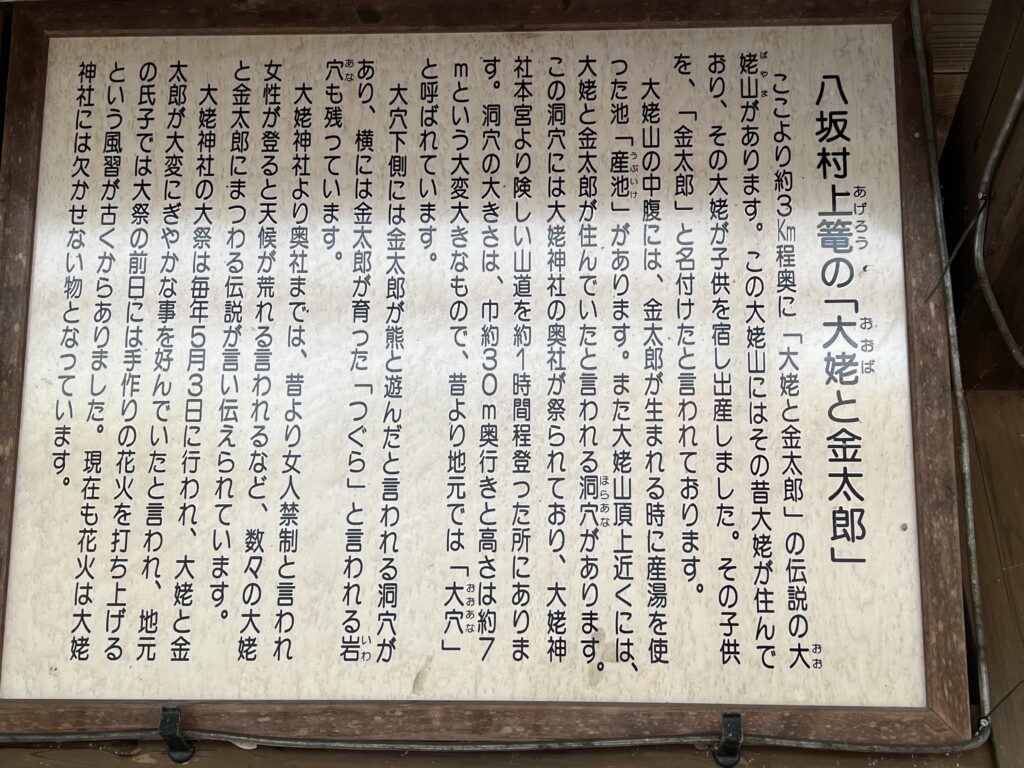 八坂村上篭の「大姥と金太郎」
ここより約3Km程奥に「大姥と金太郎」の伝説の大
姥山があります。この大姥山にはその昔大姥が住んで
おり、その大姥が子供を宿し出産しました。その子供
を、「金太郎」と名付けたと言われております。
大姥山の中腹には、金太郎が生まれる時に産湯を使
った池「産池」があります。また大姥山頂上近くには、
大姥と金太郎が住んでいたと言われる洞穴があります。
この洞穴には大姥神社の奥社が祭られており、大姥神
社本宮より険しい山道を約1時間程登った所にありま
す。洞穴の大きさは、巾約30m奥行きと高さは約7
mという大変大きなもので、昔より地元では「大穴」
と呼ばれています。
大穴下側には金太郎が熊と遊んだと言われる洞穴が
あり、横には金太郎が育った「つぐら」と言われる岩
穴も残っています。
大姥神社より奥社までは、昔より女人禁制と言われ
女性が登ると天候が荒れる言われるなど、数々の大姥
と金太郎にまつわる伝説が言い伝えられています。
大姥神社の大祭は毎年5月3日に行われ、大姥と金
太郎が大変にぎやかな事を好んでいたと言われ、地元
の氏子では大祭の前日には手作りの花火を打ち上げる
という風習が古くからありました。現在も花火は大姥
神社には欠かせない物となっています。